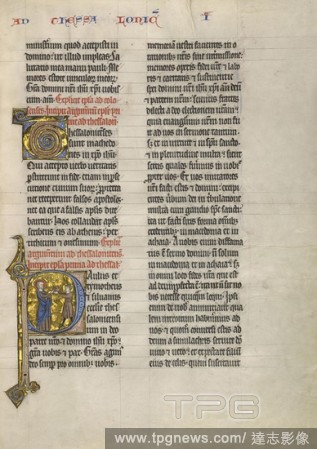 AD THESSALONIC I
ministerium quod accepisti in
domino: ut illud impleas. Sa
lutatio mea manu pauli. Me
mores estote vinculorum meorum.
domini nostri vobis
cum amen. Explicit epla ad colo
argumentum
ad thessaloni
hessalonicenses
sunt machedo
nes in
Qui accepto verbo veritatis
perstiterunt in fide etiam in perse
cutione civium suorum. preterea
nec receperunt falsos apostolos
nec ea que a falsis aplis dice
bantur. hos collaudat apls
scribens eis ab athenis. per
et onesimum. Explic
argumentum ad thessalonicenses
Incipit epla prima ad thessal
Paulus et
et silvanus
ecclie thes
salonicensium
in deo
patre et domino
gratia vobis et pax. Gratias agimus
deo semper pro omnibus vobis
memoriam vestri facientes in o
rationibus nostris sine intermissione
memores operis fidei vestre et la
boris et caritatis et sustinentie
spei domini nostri ante deum
et patrem nostrum. scientes fratres
dilecti a deo electionem vestram.
quia evangelium nostrum non fu
it ad vos in sermone tantum
sed et in virtute et in spiritu sancto
et in plenitudine multa. sicut
scitis quales fuerimus in vobis
propter vos. Et vos imitatores
nostri facti estis et domini. excipi
entes verbum dei in tribulatione
multa cum gaudio spiritus sancti.
ita ut facti sitis forma omnibus
credentibus in macedonia et in
achaia. A vobis enim diffama
tus est sermo domini
in macedonia et in achaia.
in omni loco fides vestra que est
ad deum profecta est. ita ut non sit no
bis necesse quicquam loqui. Ipsi
enim de vobis annuntiant qua
lem introitum habuimus ad
vos. et quomodo conversi estis ad
deum a simulacris servire deo
vivo et vero. et expectare filium
eius de celis. quem suscitavit
TPG
www.tpgnews.com/達志影像